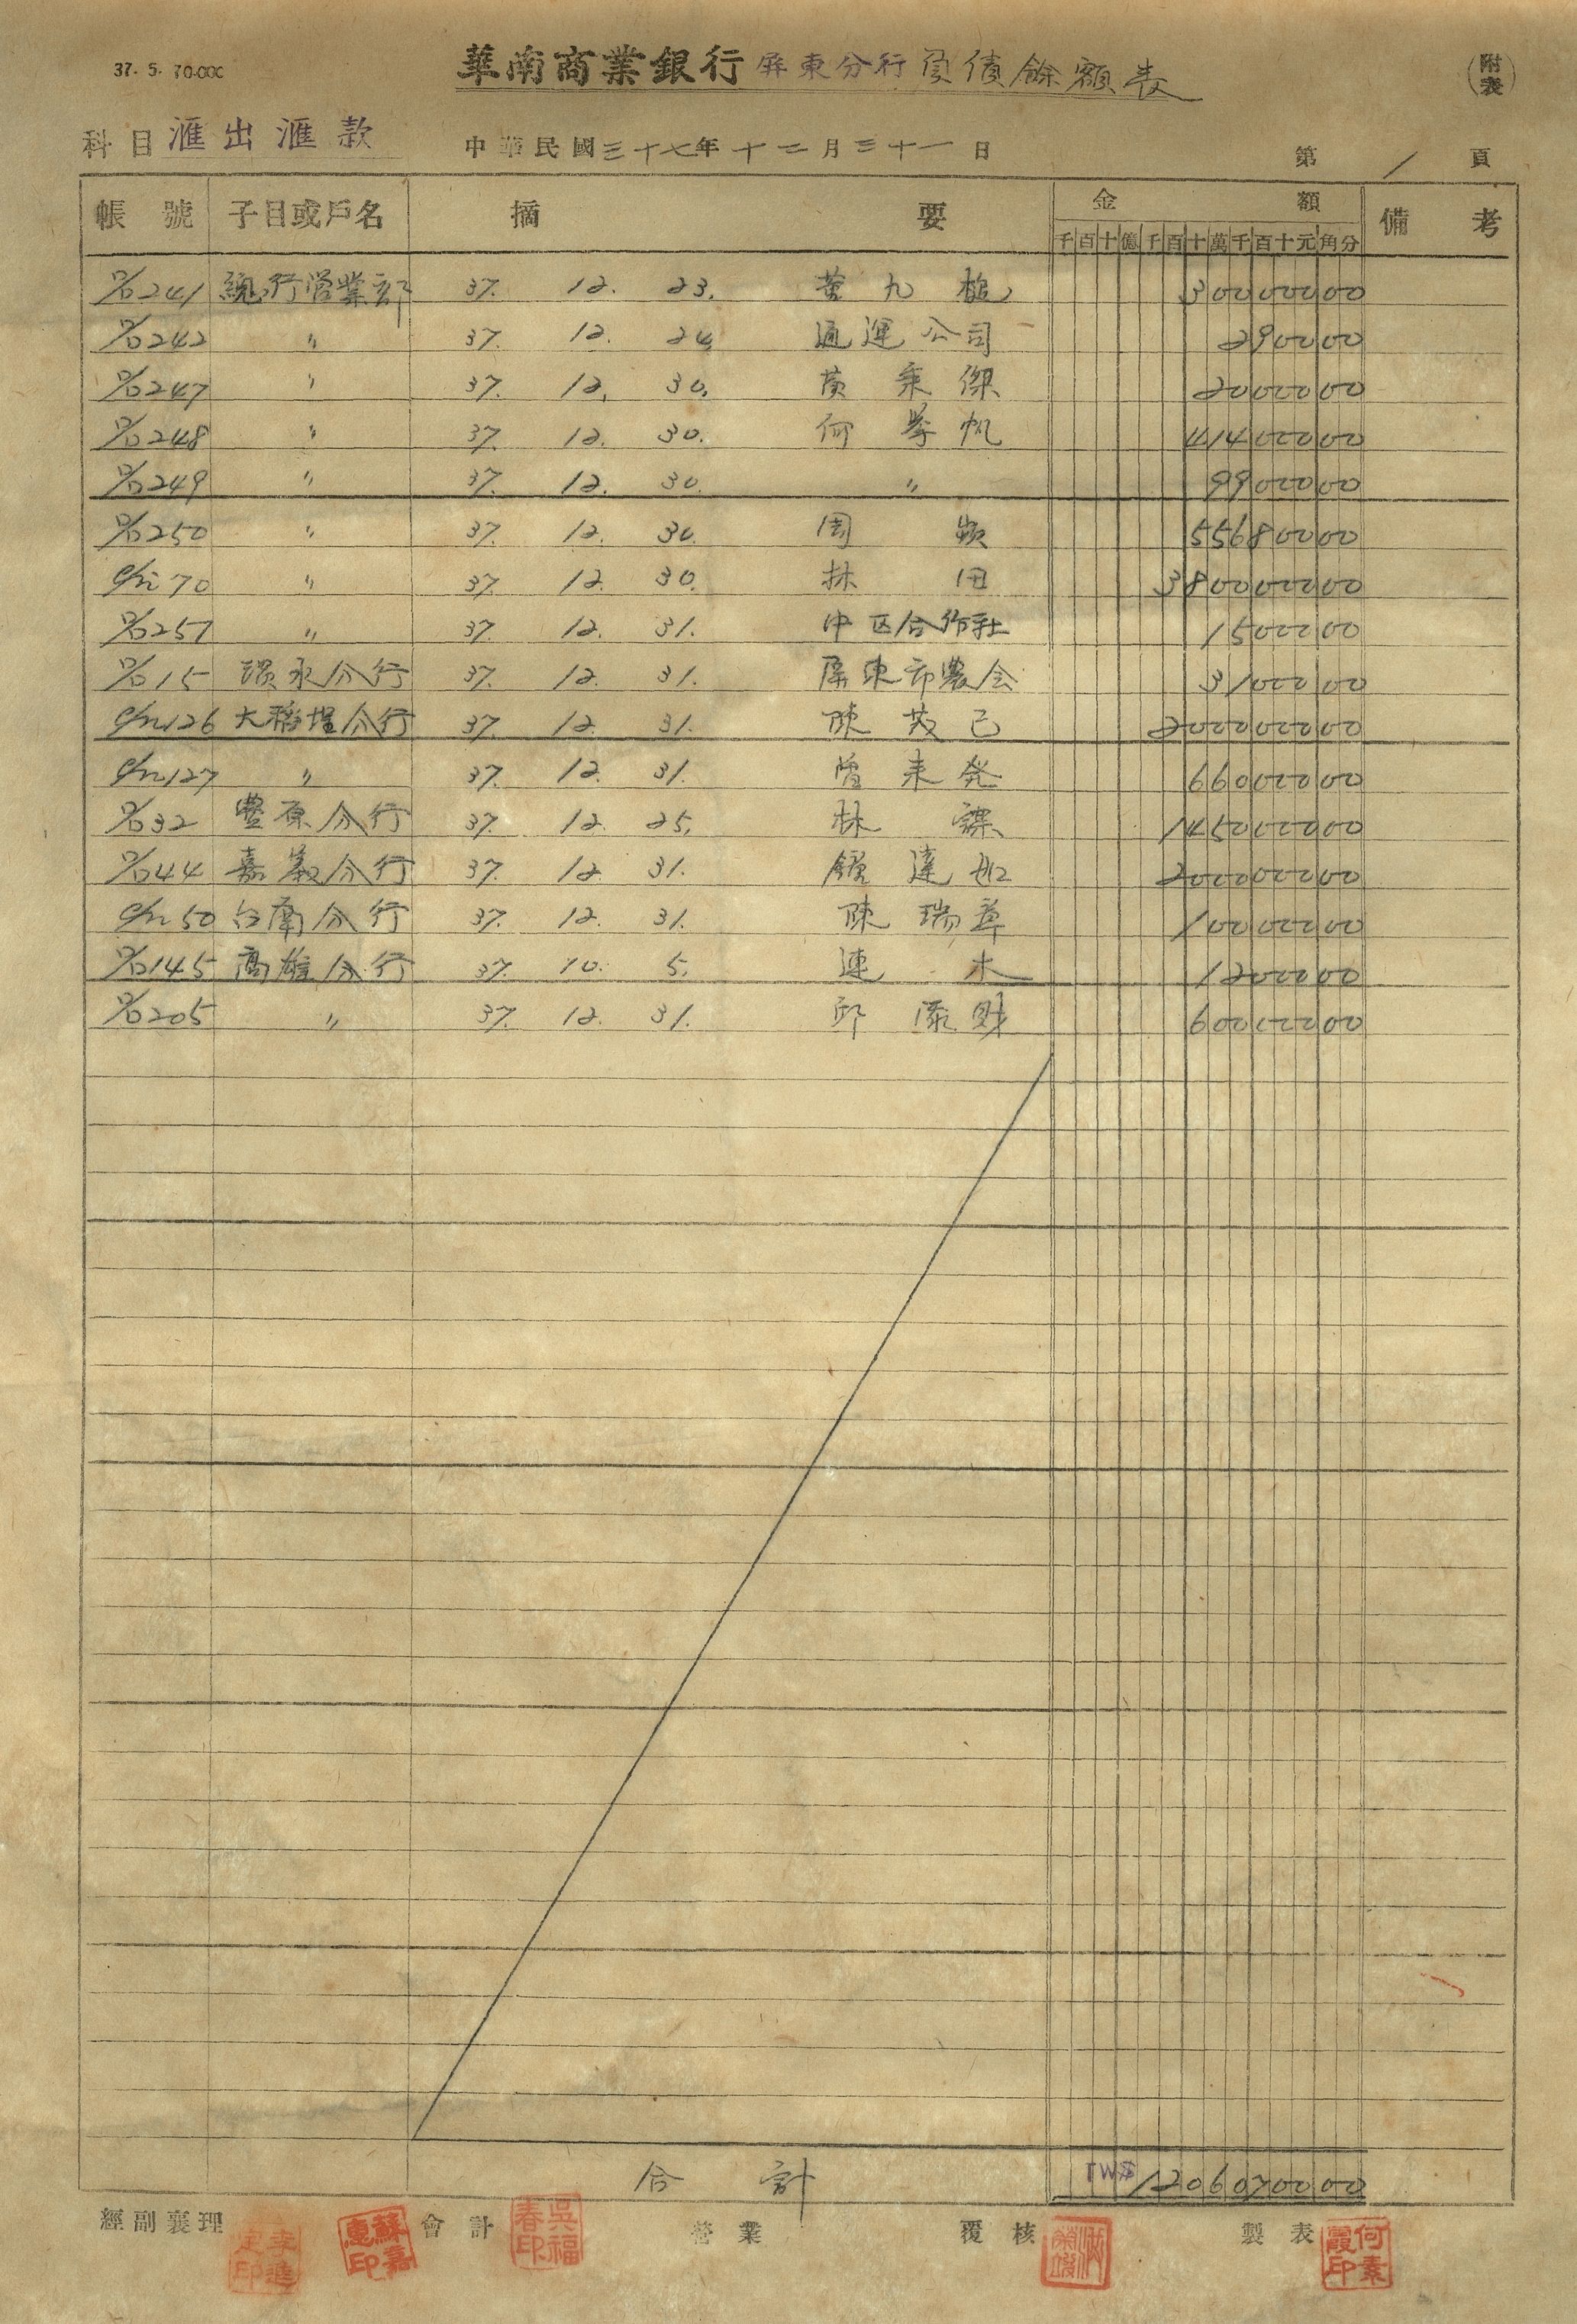 37. 5. 70.000
華南商業銀行屏東分行負債餘額表
(附表)
科目 滙出滙款 中華民國三十七年十二月三十一日 第 1 頁
帳號 子目或戶名 摘要 金額 備考
千百十億千百十萬千百十元角分
D/D 241 總行營業部 37. 12. 23. 黃九 30000000
D/D 242 〃 37. 12. 24 通運公司 290000
D/D 247 〃 37. 12. 30. 黃秉傑 2000000
D/D 248 〃 37. 12. 30. 何 帆 41400000
D/D 249 〃 37. 12. 30. 〃 9900000
D/D 250 〃 37. 12. 30. 周 5568000
70 〃 37. 12. 30. 林田 380000000
D/D 257 〃 37. 12. 31. 中区合作社 1500000
D/D 15 分行 37. 12. 31. 屏東市農会 3100000
126 大稻埕分行 37. 12. 31. 陳茂己 200000000
127 〃 37. 12. 31. 曾来発 66000000
D/D 32 豐原分行 37. 12. 25. 林 145000000
D/D 44 嘉義分行 37. 12. 31. 達 200000000
50 台南分行 37. 12. 31. 陳瑞章 10000000
D/D 145 高雄分行 37. 10. 5. 連木 1200000
D/D 205 〃 37. 12. 31. 邱添財 60000000
合計 TW$ 1206070000
經副襄理 李進定印 蘇嘉惠印 會計 吳福春印 營業 覆核 製表 何素霞印